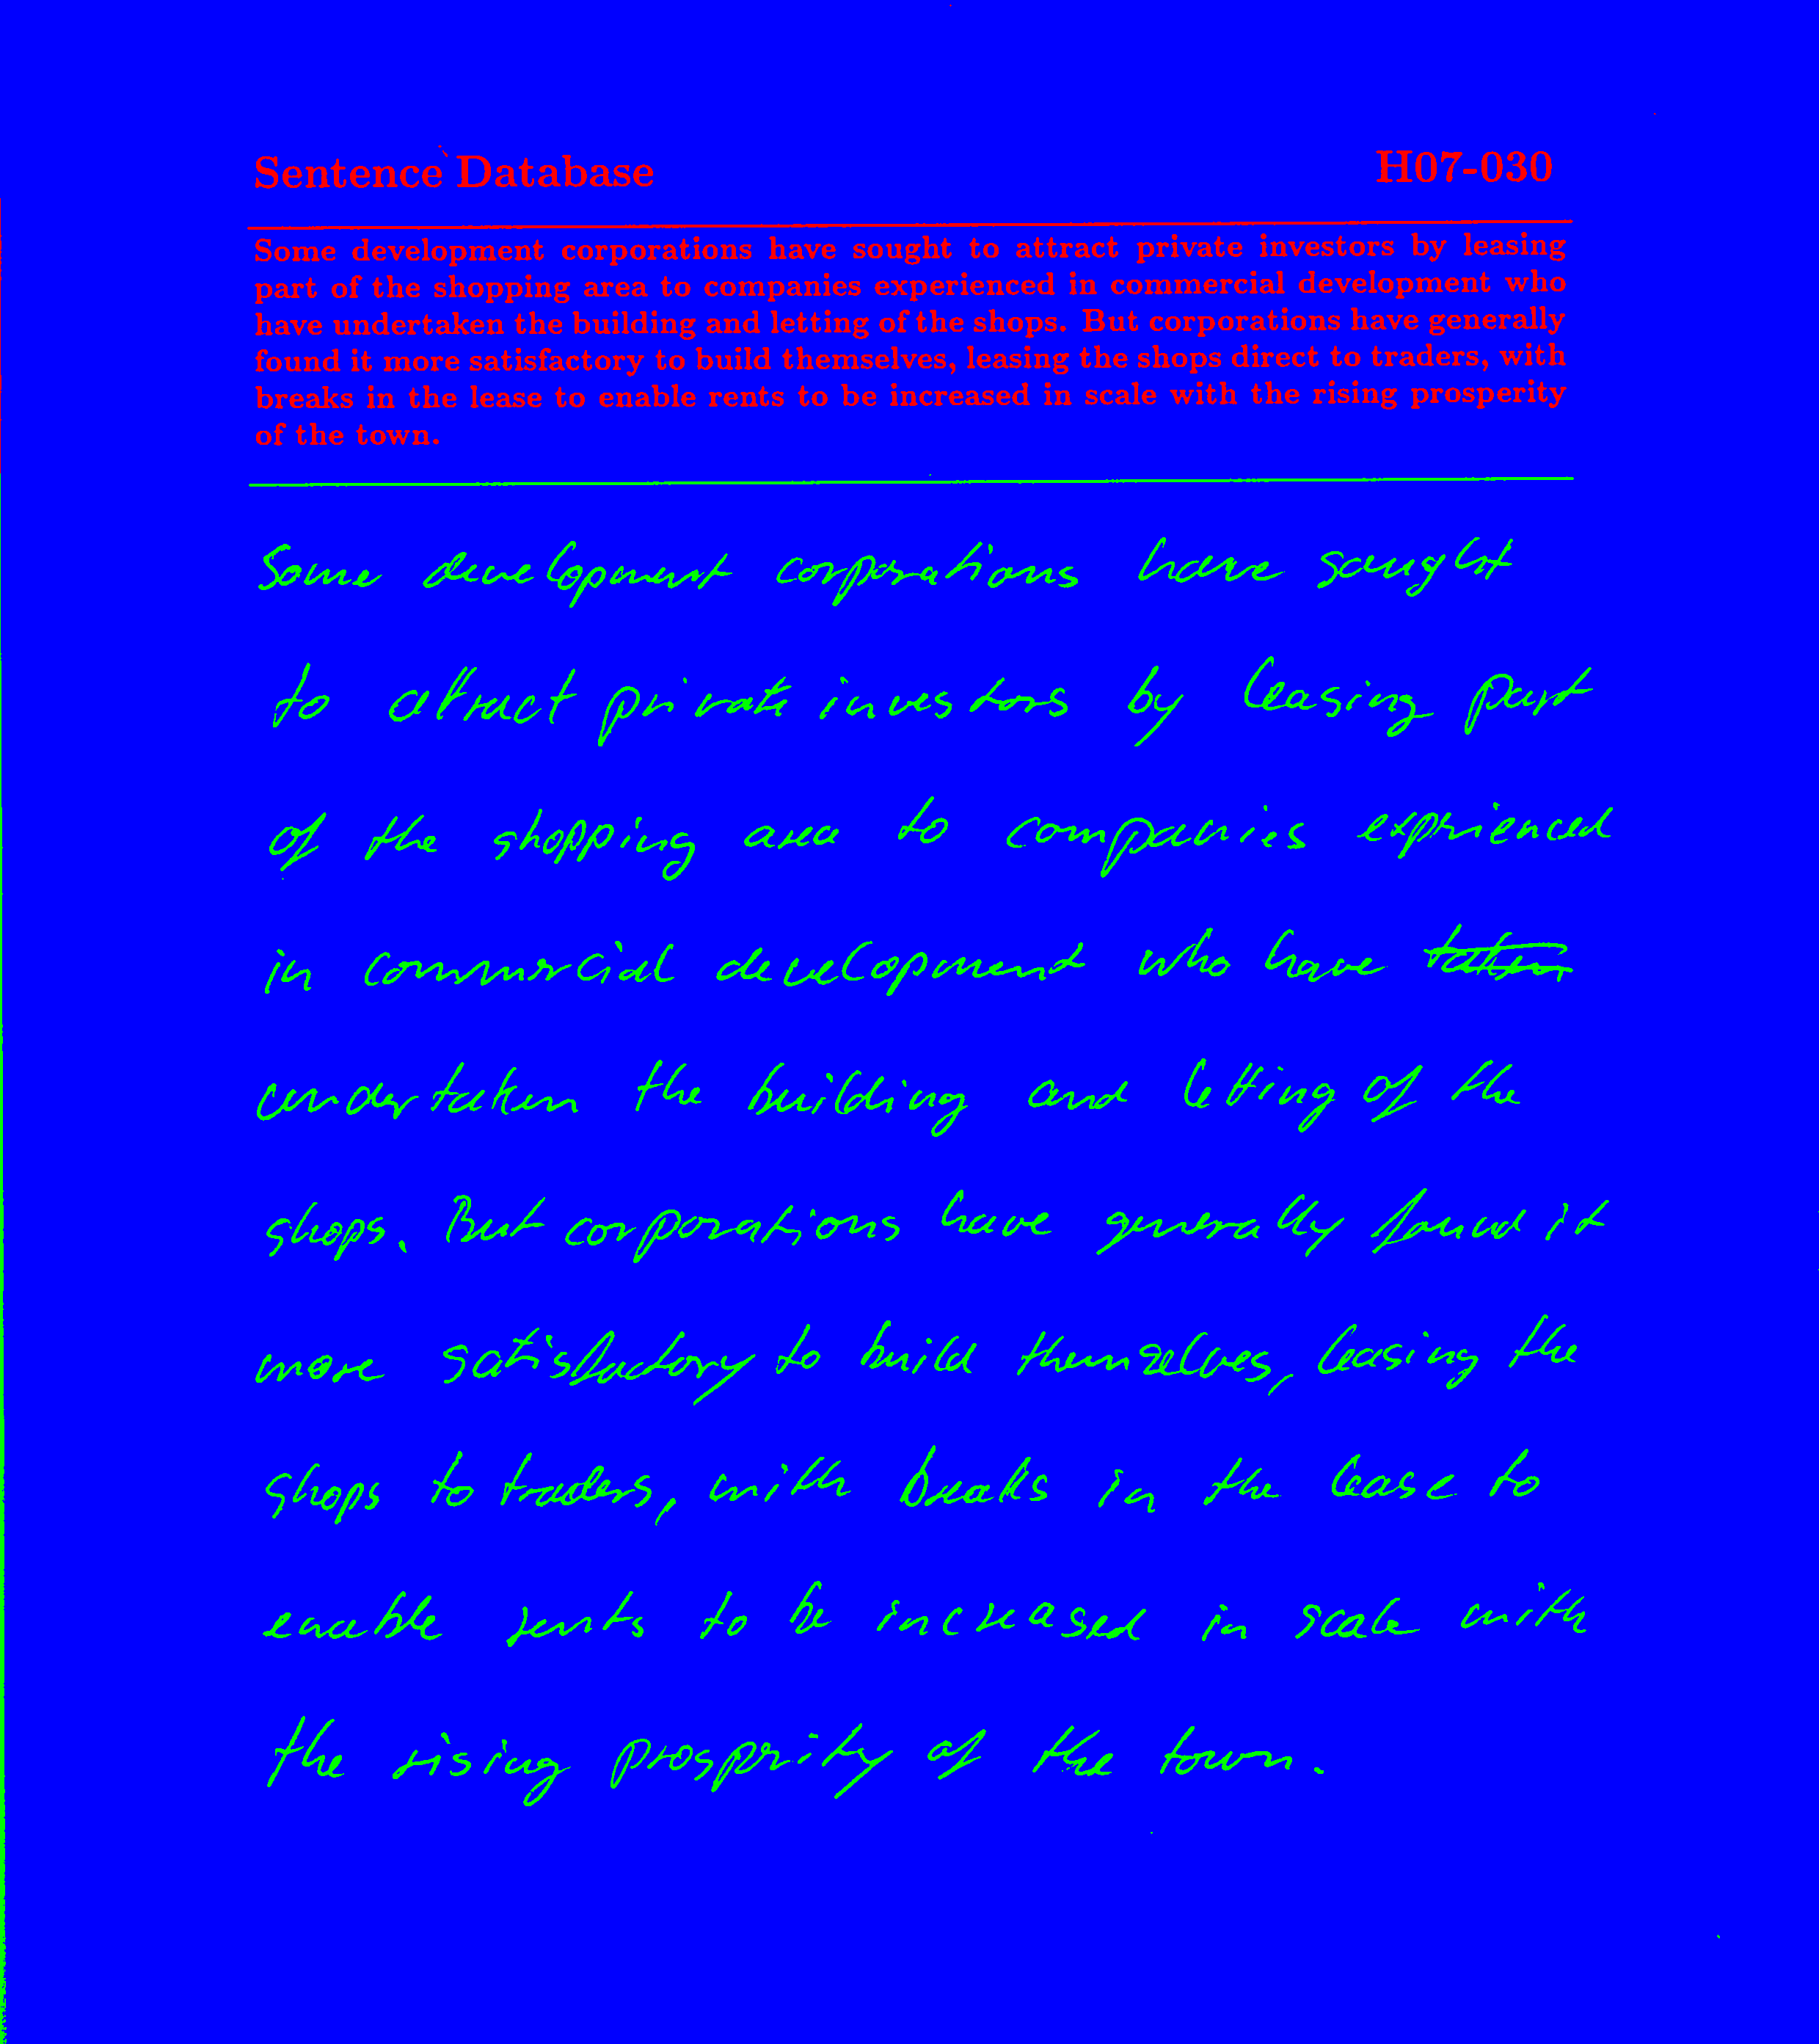 Sentence Database
H07-030
Some development corporations have sought to attract private investors by leasing
part of the shopping area to companies experienced in commercial development who
have undertaken the building and letting of the shops. But corporations have generally
found it more satisfactory to build themselves, leasing the shops direct to traders, with
breaks in the lease to enable rents to be increased in scale with the rising prosperity
of the town.
Some development corporations have sought
to attract private investors by leasing part
of the shopping area to companies exprienced
in commercial development who have
undertaken the building and letting of the
shops. But corporations have generally found it
more satisfactory to build themselves, leasing the
shops to traders, with breaks in the lease to
enable rents to be increased in scale with
the rising prosprity of the town.